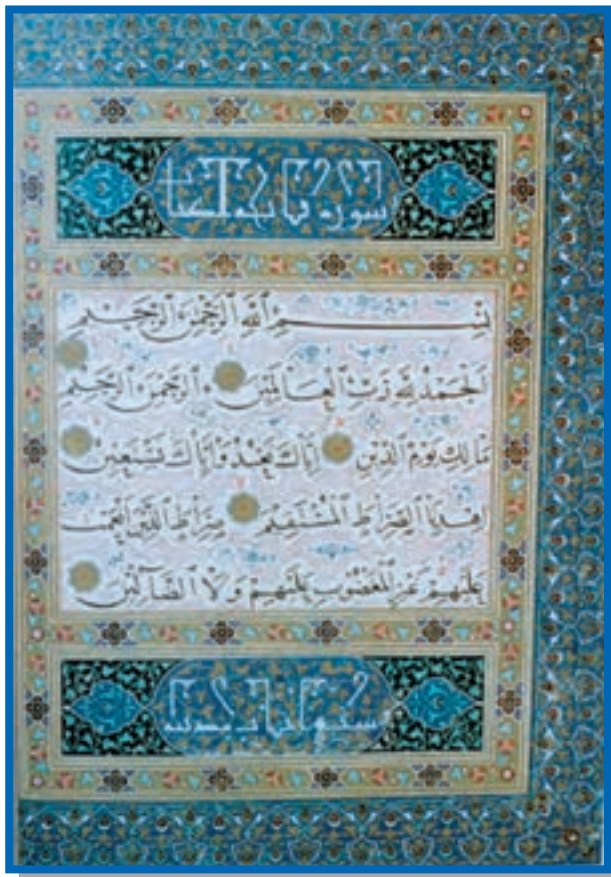 سورة فاتحة الكتاب
بِسْمِ اللَّهِ الرَّحْمَنِ الرَّحِيمِ
الْحَمْدُ لِلَّهِ رَبِّ الْعَالَمِينَ الرَّحْمَنِ الرَّحِيمِ
مَالِكِ يَوْمِ الدِّينِ إِيَّاكَ نَعْبُدُ وَإِيَّاكَ نَسْتَعِينُ
اهْدِنَا الصِّرَاطَ الْمُسْتَقِيمَ صِرَاطَ الَّذِينَ أَنْعَمْتَ
عَلَيْهِمْ غَيْرِ الْمَغْضُوبِ عَلَيْهِمْ وَلَا الضَّالِّينَ
سبع آيات مدنية